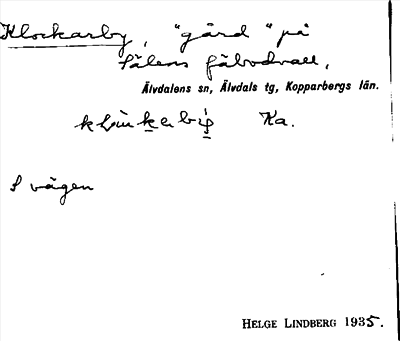 Klockarby, "gård" på
Sälens fäbodvall,
Älvdalens sn, Älvdals tg, Kopparbergs län.
Ka.
S vägen
HELGE LINDBERG 1935.